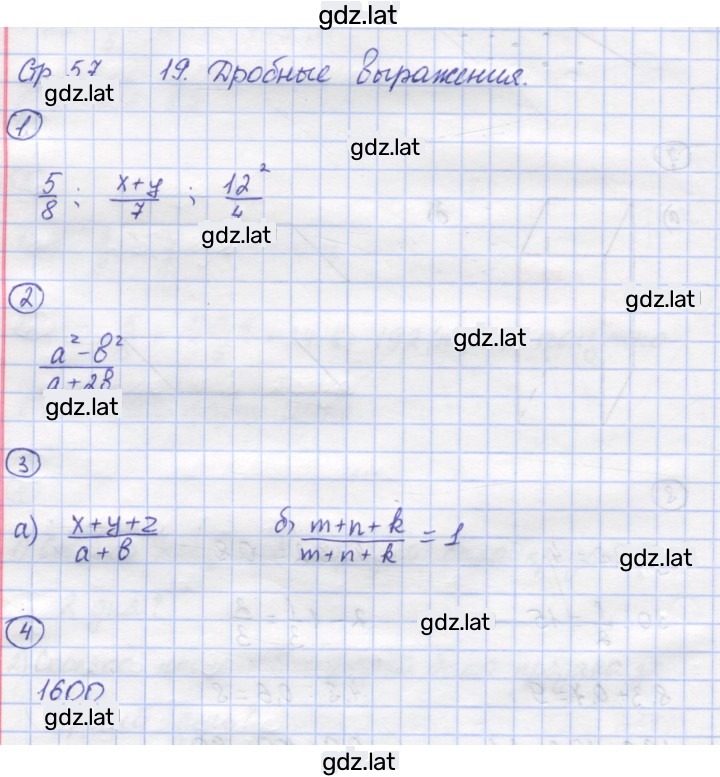 gdz.lat
Стр 57 19. Дробные выражения.
gdz.lat
1
gdz.lat
5/8 ; x+y/7 ; 12²/4
gdz.lat
2
gdz.lat
gdz.lat
a²-b²/a+2b
gdz.lat
3
а) x+y+z/a+b б) m+n+k/m+n+k = 1
gdz.lat
4
gdz.lat
1600
gdz.lat
gdz.lat